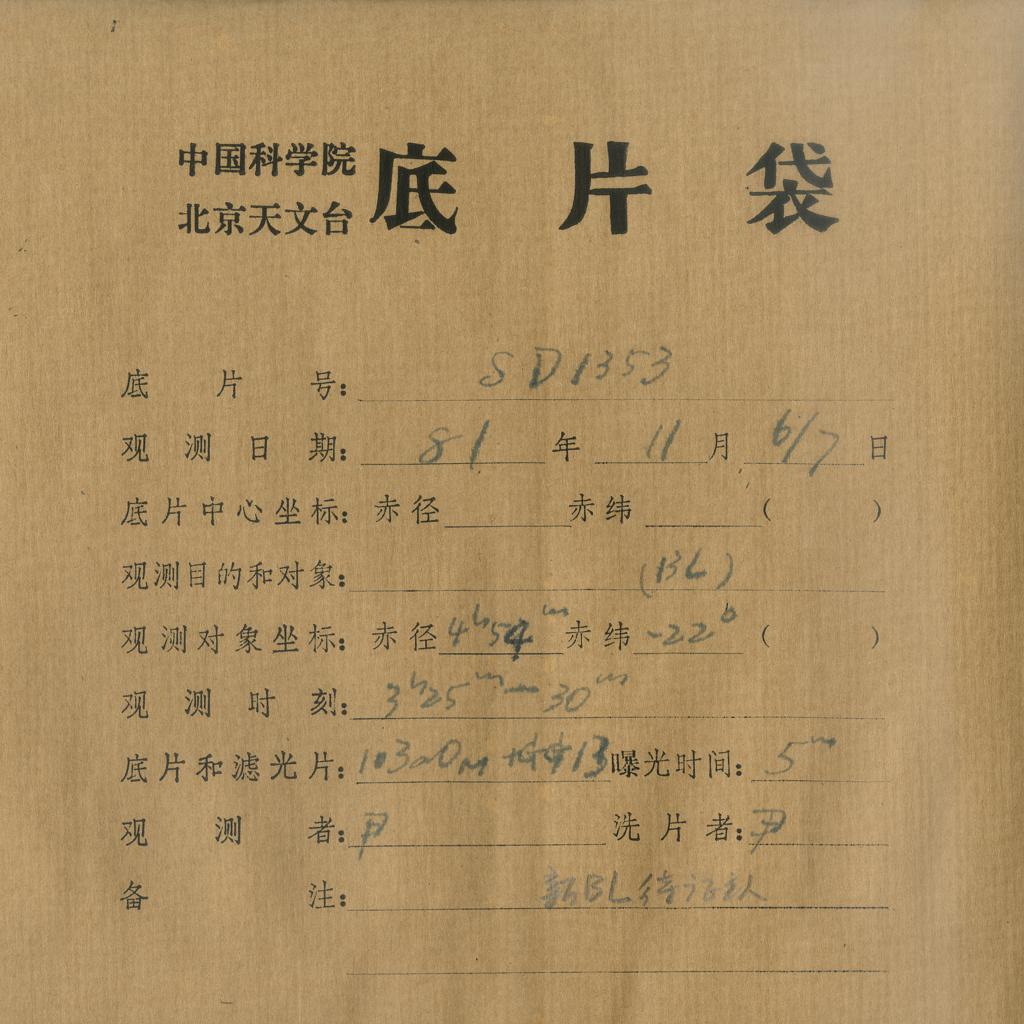 中国科学院
北京天文台
底片袋
底片号：SD1353
观测日期：81年11月6/7日
底片中心坐标：赤径 赤纬 （ ）
观测目的和对象：(BL)
观测对象坐标：赤径4h54m赤纬-22° （ ）
观测时刻：3h25m—30m
底片和滤光片：103aO 13 曝光时间：5m
观测者：尹 洗片者：尹
备注：新BL待证认